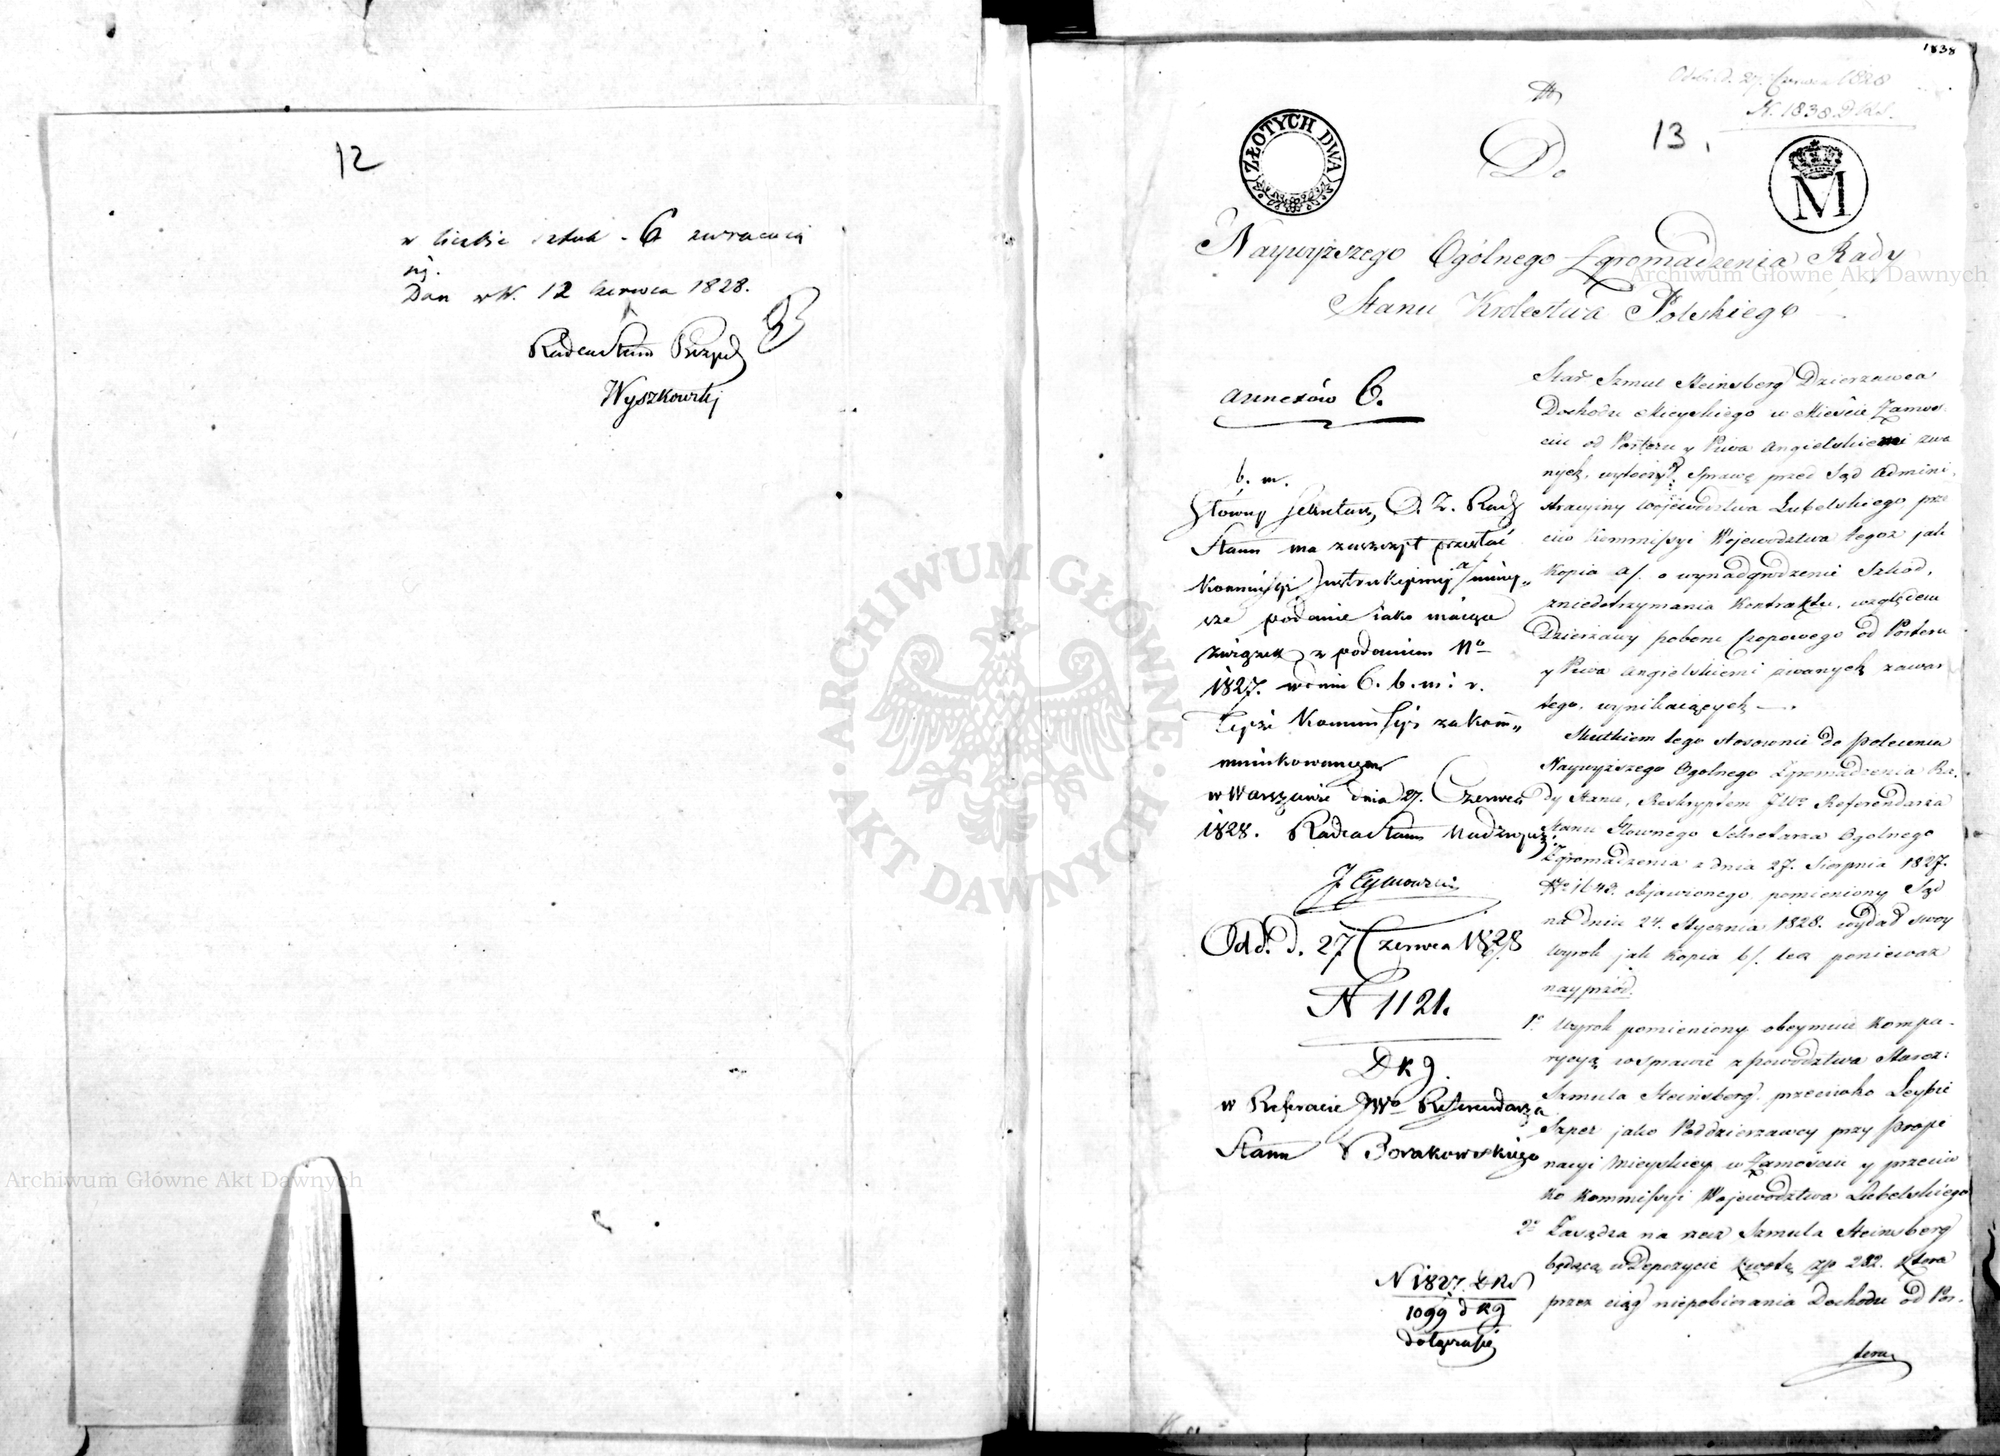 12
w liczbie sztuk - 6 zwracaią
się.
Dan w W. 12 Czerwca 1828.
Radca Stanu Prezyd
Wyszkowski
1838
Odeb. d. 27. Czerwca 1828
N. 1838 D.R.S.
13.
ZŁOTYCH DWA
M
Do
Naywyższego Ogólnego Zgromadzenia Rady
Stanu Królestwa Polskiego
annexów 6.
b. m.
Główny Sekretarz O. Z. Rady
Stanu ma zaszczyt przesłać
Kommissyi Instrukcyjney niniey„
sze podanie iako maiące
związek z podaniem No
1827. w dniu 6. b. m. i r.
Teyże Kommissyi zakom„
munikowanym
w Warszawie dnia 27. Czerwca
1828. Radca Stanu Nadzwycz:
J. Tymowski
Odd. d. 27 Czerwca 1828
N 1121.
DKJ.
w Referacie JWo Referendarza
Stanu Borakowskiego
N 1827. DRS
1099 dKJ
dołącza się
Star. Szmul Steinsberg Dzierzawca
Dochodu Mieyskiego w Mieście Zamoś-
ciu od Porteru y Piwa Angielskiemi zwa
nych, wytoczył sprawę przed Sąd Admini-
stracyiny Województwa Lubelskiego, prze
ciw Kommissyi Województwa tegoż jak
Kopia a/. o wynadgrodzenie Szkod,
z niedotrzymania Kontraktu, względem
Dzierżawy poboru Czopowego od Porteru
y Piwa Angielskiemi zwanych zawar
tego, wynikaiących —.
Skutkiem tego stosownie do polecenia
Naywyższego Ogolnego Zgromadzenia Ra-
dy Stanu, Reskryptem JWo Referendarza
Stanu Głownego Sekretarza Ogolnego
Zgromadzenia z dnia 27. Sierpnia 1827.
No 1643. objawionego pomieniony Sąd
na dniu 24. Stycznia 1828. wydał swoy
Wyrok jak Kopia b/. lecz ponieważ
nayprzód.
1o Wyrok pomieniony obeymuie Kompa-
rycyą w sprawie z powództwa Staroz:
Szmula Steinsberg przeciwko Leybie
Szper jako Poddzierzawcy przy Propi
nacyi Mieyskiey w Zamościu y przeciw
ko Kommissyi Województwa Lubelskiego
2o Zasądza na rzecz Szmula Steinsberg
będącą w Depozycie kwotę zp 282. która
przez ciąg niepobierania Dochodu od Por-
teru
Archiwum Główne Akt Dawnych
Archiwum Główne Akt Dawnych
ARCHIWUM GŁÓWNE · AKT DAWNYCH ·